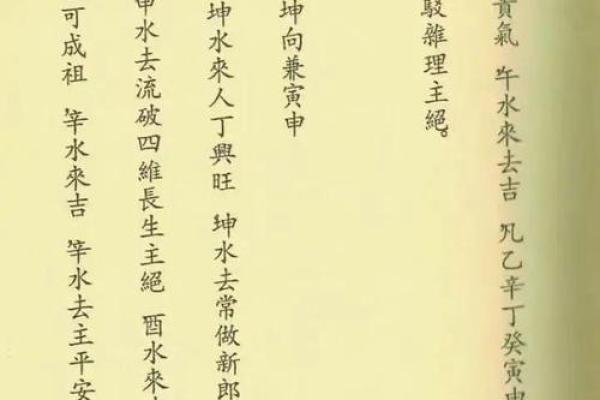 貴氣 午水來去吉 凡乙辛丁癸寅申
駁雜理主絕。
坤向兼寅申
坤水來人丁興旺 坤水去常做新郎
申水去流破四維長生主絕 酉水來
可成祖 辛水來吉 辛水去主平安